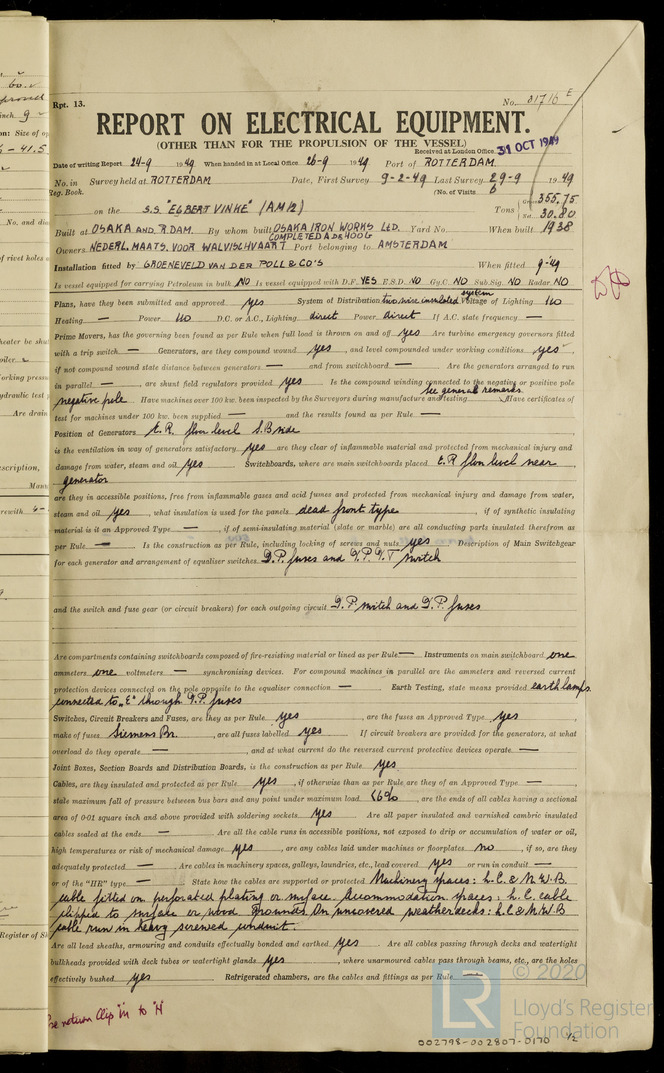 Rpt. 13.
No. 31716 E
REPORT ON ELECTRICAL EQUIPMENT.
(OTHER THAN FOR THE PROPULSION OF THE VESSEL)
Received at London Office 31 OCT 1949
Date of writing Report 24-9 1949 When handed in at Local Office 26-9 1949 Port of ROTTERDAM
No. in Survey held at ROTTERDAM Date, First Survey 9-2-49 Last Survey 29-9 1949
Reg. Book. (No. of Visits 6
on the S.S. "EGBERT VINKE" (AM12) Tons 355.75
30.80
Built at OSAKA AND R'DAM. By whom built OSAKA IRON WORKS LTD. Yard No. When built 1938
COMPLETED A. DE HOOG
Owners NEDERL. MAATS. VOOR WALVISCHVAART Port belonging to AMSTERDAM
Installation fitted by GROENEVELD VAN DER POLL & CO'S When fitted 9-49
Is vessel equipped for carrying Petroleum in bulk NO Is vessel equipped with D.F. YES E.S.D. NO Gy.C. NO Sub.Sig. NO Radar NO
Plans, have they been submitted and approved yes System of Distribution two wire insulated system Voltage of Lighting 110
Heating — Power 110 D.C. or A.C., Lighting direct Power direct If A.C. state frequency —
Prime Movers, has the governing been found as per Rule when full load is thrown on and off yes Are turbine emergency governors fitted
with a trip switch — Generators, are they compound wound yes, and level compounded under working conditions yes,
if not compound wound state distance between generators — and from switchboard — Are the generators arranged to run
in parallel —, are shunt field regulators provided yes Is the compound winding connected to the negative or positive pole
see general remarks
negative pole Have machines over 100 kw. been inspected by the Surveyors during manufacture and testing Have certificates of
test for machines under 100 kw. been supplied — and the results found as per Rule —
Position of Generators E.R. floor level S.B side
is the ventilation in way of generators satisfactory yes are they clear of inflammable material and protected from mechanical injury and
damage from water, steam and oil yes Switchboards, where are main switchboards placed E.R floor level near
generator
are they in accessible positions, free from inflammable gases and acid fumes and protected from mechanical injury and damage from water,
steam and oil yes, what insulation is used for the panels dead front type, if of synthetic insulating
material is it an Approved Type —, if of semi-insulating material (slate or marble) are all conducting parts insulated therefrom as
per Rule — Is the construction as per Rule, including locking of screws and nuts yes Description of Main Switchgear
for each generator and arrangement of equaliser switches D.P. fuses and D.P. D.T switch
and the switch and fuse gear (or circuit breakers) for each outgoing circuit D.P switch and D.P. fuses
Are compartments containing switchboards composed of fire-resisting material or lined as per Rule — Instruments on main switchboard one
ammeters one voltmeters — synchronising devices. For compound machines in parallel are the ammeters and reversed current
protection devices connected on the pole opposite to the equaliser connection — Earth Testing, state means provided earth lamps
connected to "E" through D.P. fuses
Switches, Circuit Breakers and Fuses, are they as per Rule yes, are the fuses an Approved Type yes,
make of fuses Siemens Br., are all fuses labelled yes If circuit breakers are provided for the generators, at what
overload do they operate —, and at what current do the reversed current protective devices operate —
Joint Boxes, Section Boards and Distribution Boards, is the construction as per Rule yes
Cables, are they insulated and protected as per Rule yes, if otherwise than as per Rule are they of an Approved Type —,
state maximum fall of pressure between bus bars and any point under maximum load <6%, are the ends of all cables having a sectional
area of 0·01 square inch and above provided with soldering sockets yes Are all paper insulated and varnished cambric insulated
cables sealed at the ends — Are all the cable runs in accessible positions, not exposed to drip or accumulation of water or oil,
high temperatures or risk of mechanical damage yes, are any cables laid under machines or floorplates no, if so, are they
adequately protected — Are cables in machinery spaces, galleys, laundries, etc., lead covered yes or run in conduit —
or of the "HR" type — State how the cables are supported or protected Machinery spaces: L.C. & M.W.B
cable fitted on perforated plating or surface. Accommodation spaces: L.C. cable
clipped to surface or wood grounds. On uncovered weatherdecks: L.C & M.W.B
cable run in heavy screwed conduit.
Are all lead sheaths, armouring and conduits effectually bonded and earthed yes Are all cables passing through decks and watertight
bulkheads provided with deck tubes or watertight glands yes, where unarmoured cables pass through beams, etc., are the holes
effectively bushed yes Refrigerated chambers, are the cables and fittings as per Rule —
return Clip "in" to "H"
© 2020
LR
Lloyd's Register
Foundation
002798-002807-0170 1/2